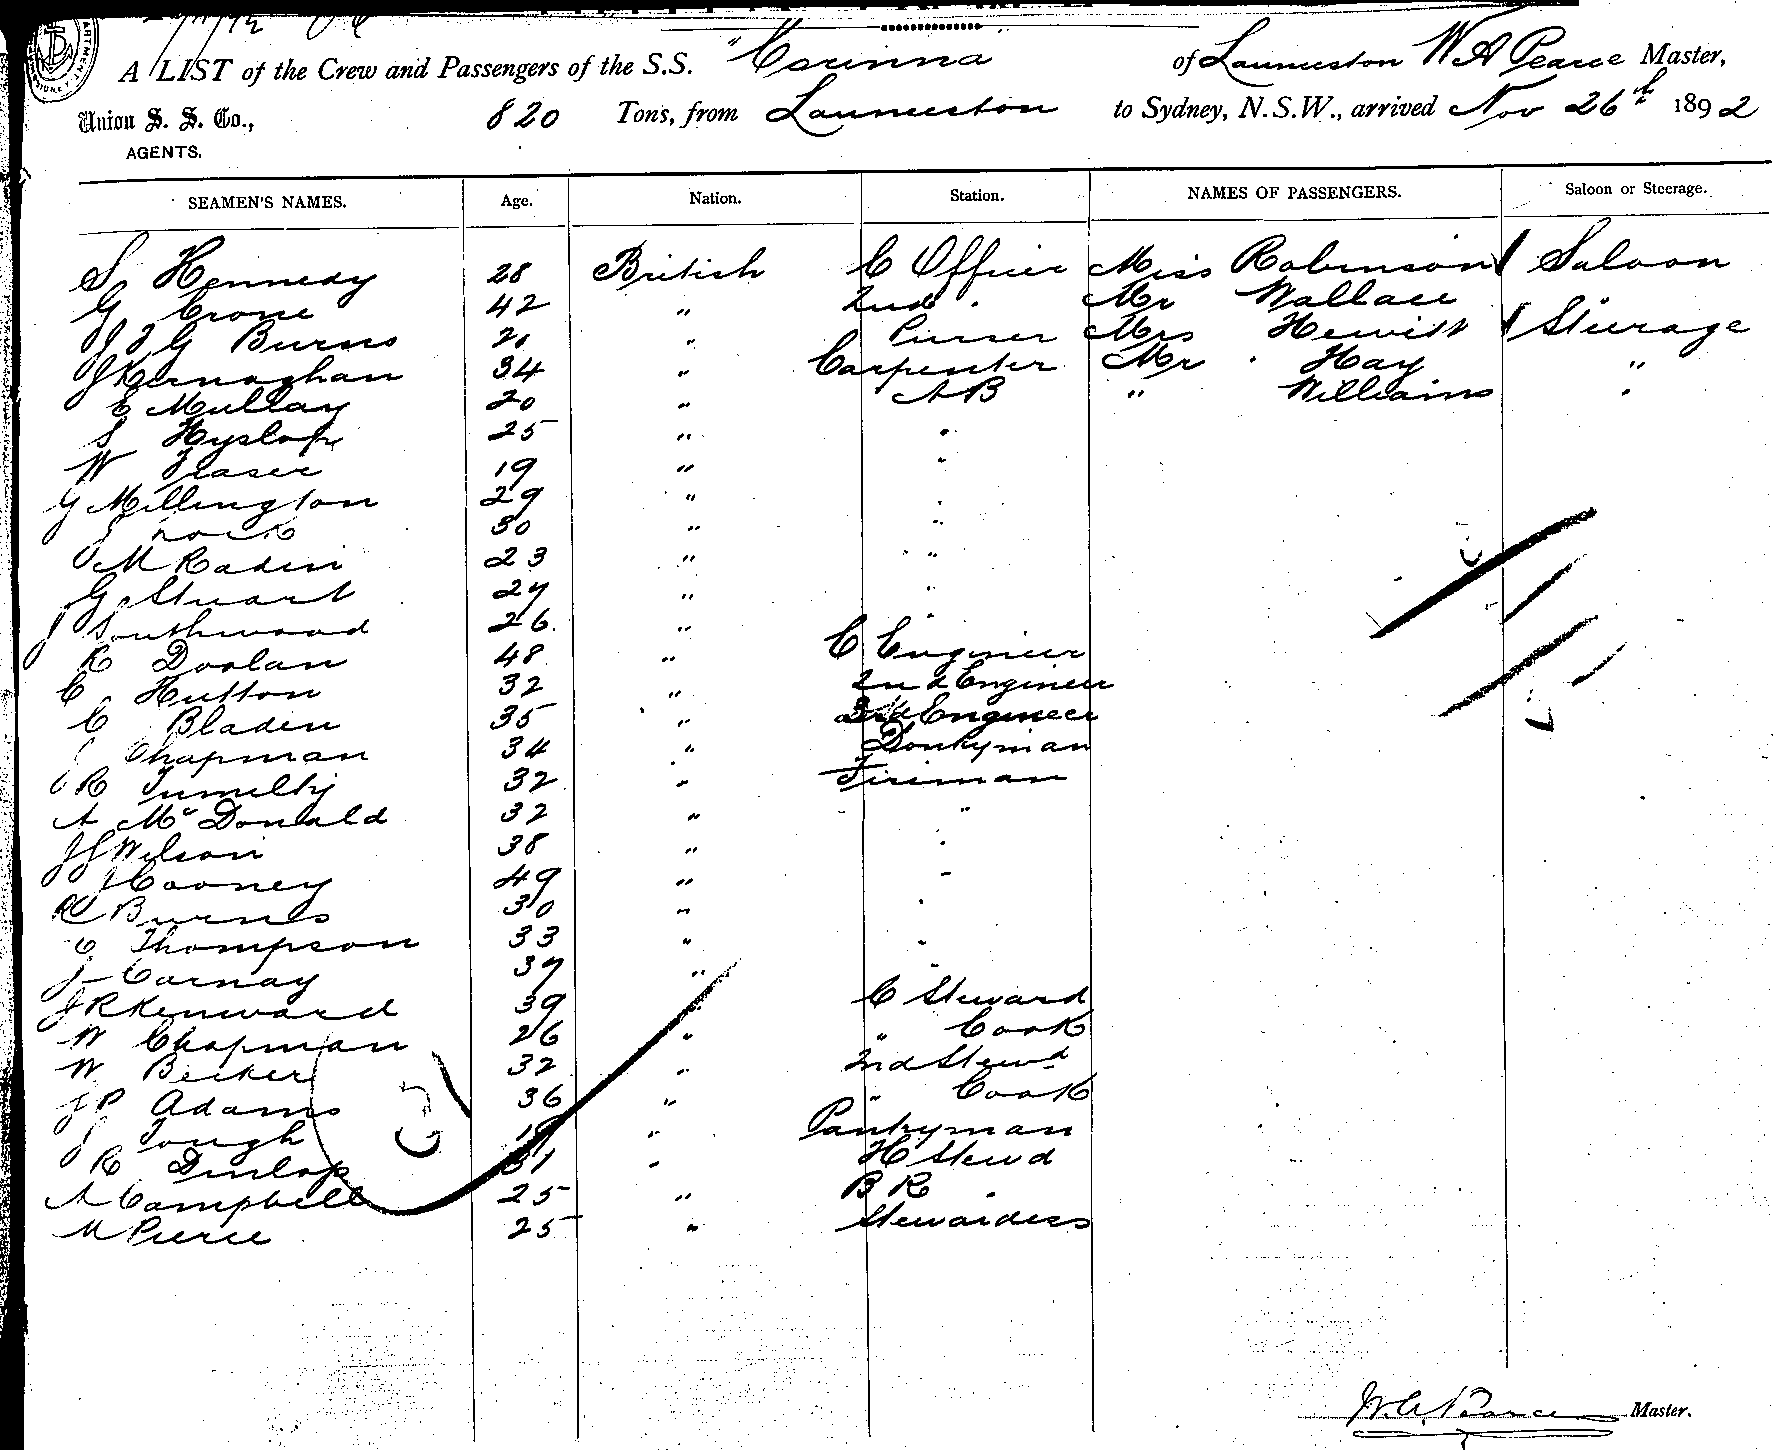 A LIST of the Crew and Passengers of the S.S. "Corinna" of Launceston W A Pearce Master,
Union S. S. Co., 820 Tons, from Launceston to Sydney, N.S.W., arrived Nov 26th 1892
AGENTS.
SEAMEN'S NAMES. Age. Nation. Station. NAMES OF PASSENGERS. Saloon or Steerage.
S Kennedy 28 British C Officer Miss Robinson Saloon
G Crone 42 " 2nd " Mr Wallace
J G Burns 21 " Purser Mrs Hewitt Steerage
J Kernaghan 34 " Carpenter Mr Hay "
E Mullay 20 " AB " Williams "
S Hyslop 25 " "
W Fraser 19 " "
G Millington 29 " "
J Lock 30 " "
M Radin 23 " "
G Stuart 27 " "
J Southwood 26 " "
R Doolan 48 " C Engineer
C Hutton 32 " 2nd Engineer
C Bladen 35 " 3rd Engineer
J Chapman 34 " Donkyman
R Tumilty 32 " Fireman
A McDonald 32 " "
J S Wilson 38 " "
J Cooney 49 " "
R Burns 30 " "
C Thompson 33 " "
J Carnay 37 " "
J R Kenward 39 " C Steward
W Chapman 26 " " Cook
W Becker 32 " 2nd Stewd
J P Adams 36 " " Cook
J Tough 19 " Pantryman
R Dunlop 31 " H Stewd
A Campbell 25 " B R "
M Pierce 25 " Stewardess
W. A. Pearce Master.